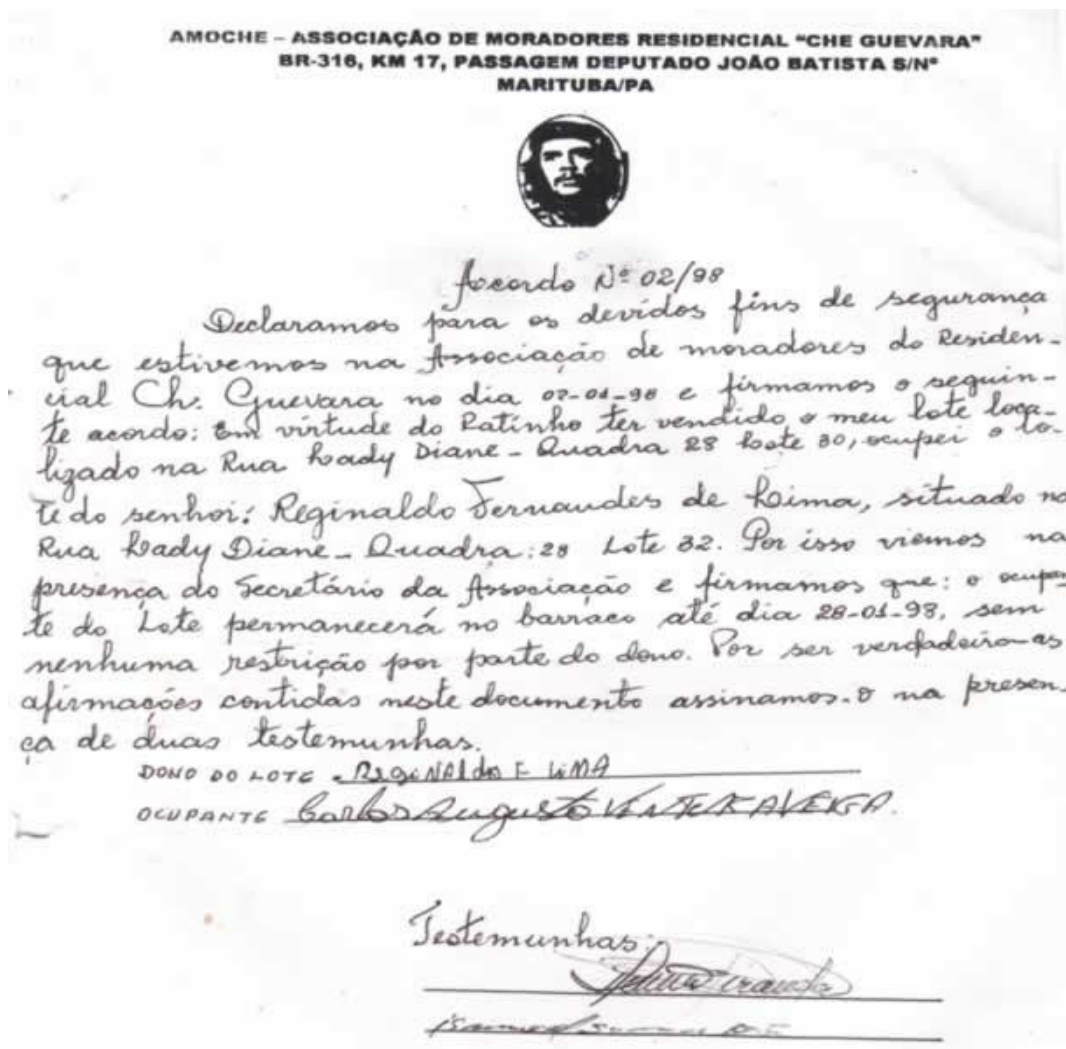 AMOCHE – ASSOCIAÇÃO DE MORADORES RESIDENCIAL "CHE GUEVARA"
BR-316, KM 17, PASSAGEM DEPUTADO JOÃO BATISTA S/Nº
MARITUBA/PA
Acordo Nº 02/98
Declaramos para os devidos fins de segurança
que estivemos na Associação de moradores do Residen-
cial Ch. Guevara no dia 07-01-98 e firmamos o seguin-
te acordo: Em virtude do Ratinho ter vendido o meu lote loca-
lizado na Rua Lady Diane - Quadra 28 Lote 30, ocupei o lo-
te do senhor: Reginaldo Fernandes de Lima, situado na
Rua Lady Diane - Quadra: 28 Lote 32. Por isso viemos na
presença do Secretário da Associação e firmamos que: o ocupan-
te do Lote permanecerá no barraco até dia 28-01-98, sem
nenhuma restrição por parte do dono. Por ser verdadeiro as
afirmações contidas neste documento assinamos-o na presen-
ça de duas testemunhas.
DONO DO LOTE Reginaldo F LiMA
OCUPANTE Carlos Augusto
Testemunhas: